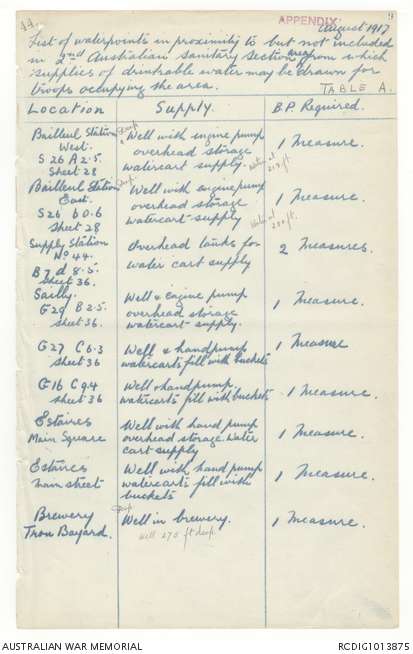 44
APPENDIX
9
August 1917
List of waterpoints in proximity to but not included
in 2nd Australian Sanitary Section area from which
supplies of drinkable water may be drawn for
troops occupying the area.
TABLE A.
Location Supply. B.P. Required.
Bailleul Station Deep Well with engine pump
West. overhead storage 1 Measure
S 26 A 2.5. watercart supply. Water at 217 ft.
Sheet 28
Bailleul Station Deep Well with engine pump
East. overhead storage 1 Measure.
S26 b 0.6 watercart supply Water at
Sheet 28
Supply Station Overhead tanks for 2 Measures.
No 44. water cart supply
B 7 d 8.5.
sheet 36.
Sailly. Well & Engine pump
G20 B 2.5. overhead storage 1 Measure.
sheet 36. watercart supply.
G27 C 6.3 Well & handpump 1 Measure
sheet 36 watercarts fill with buckets
G16 C 9.4 Well & handpump
sheet 36 watercarts fill with buckets 1 Measure.
Estaires Well with hand pump
Main Square overhead storage water 1 Measure.
cart supply
Estaires Well with hand pump
main street watercarts fill with 1 Measure.
buckets
Brewery Deep Well in brewery. 1 Measure.
Trou Bayard. well 270 ft deep
AUSTRALIAN WAR MEMORIAL
RCDIG1013875